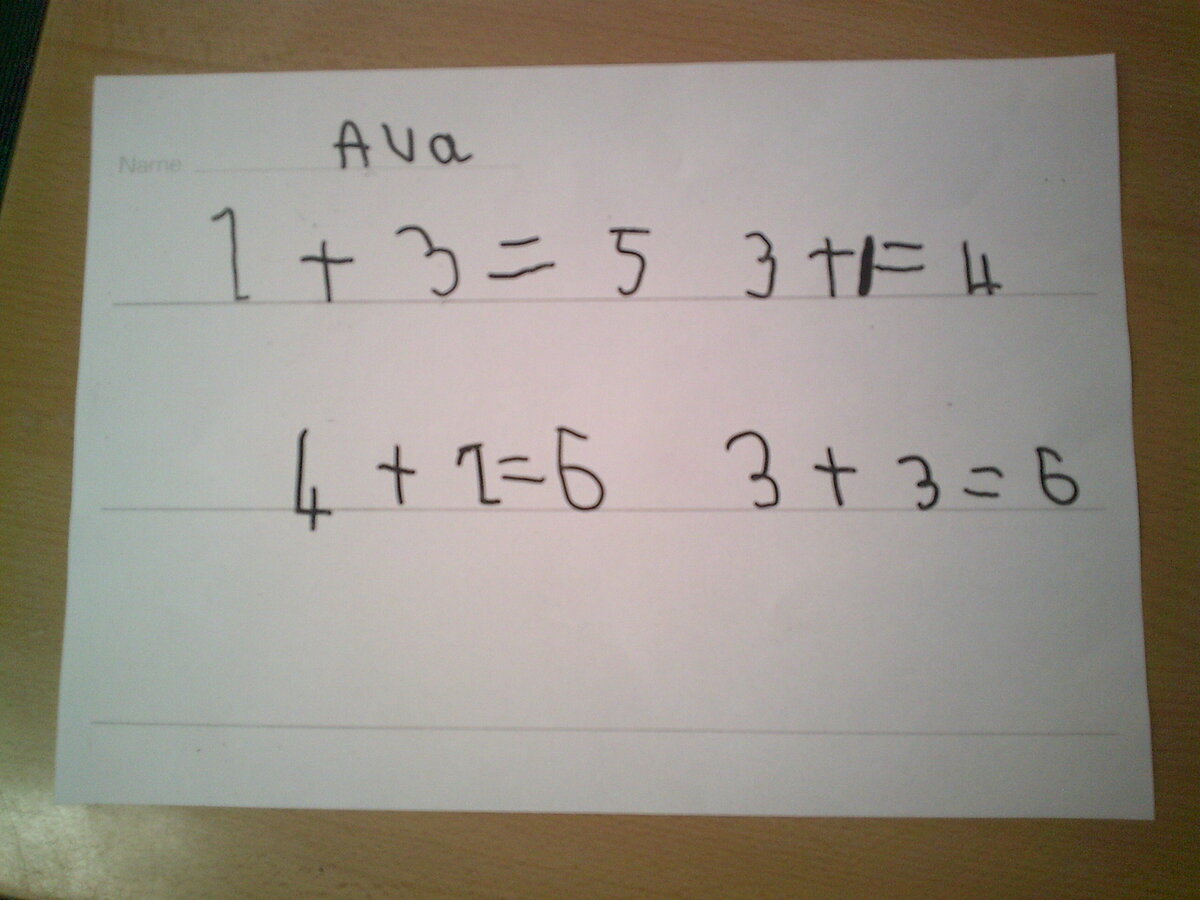 Name AVa
1 + 3 = 5 3 + 1 = 4
4 + 1 = 6 3 + 3 = 6